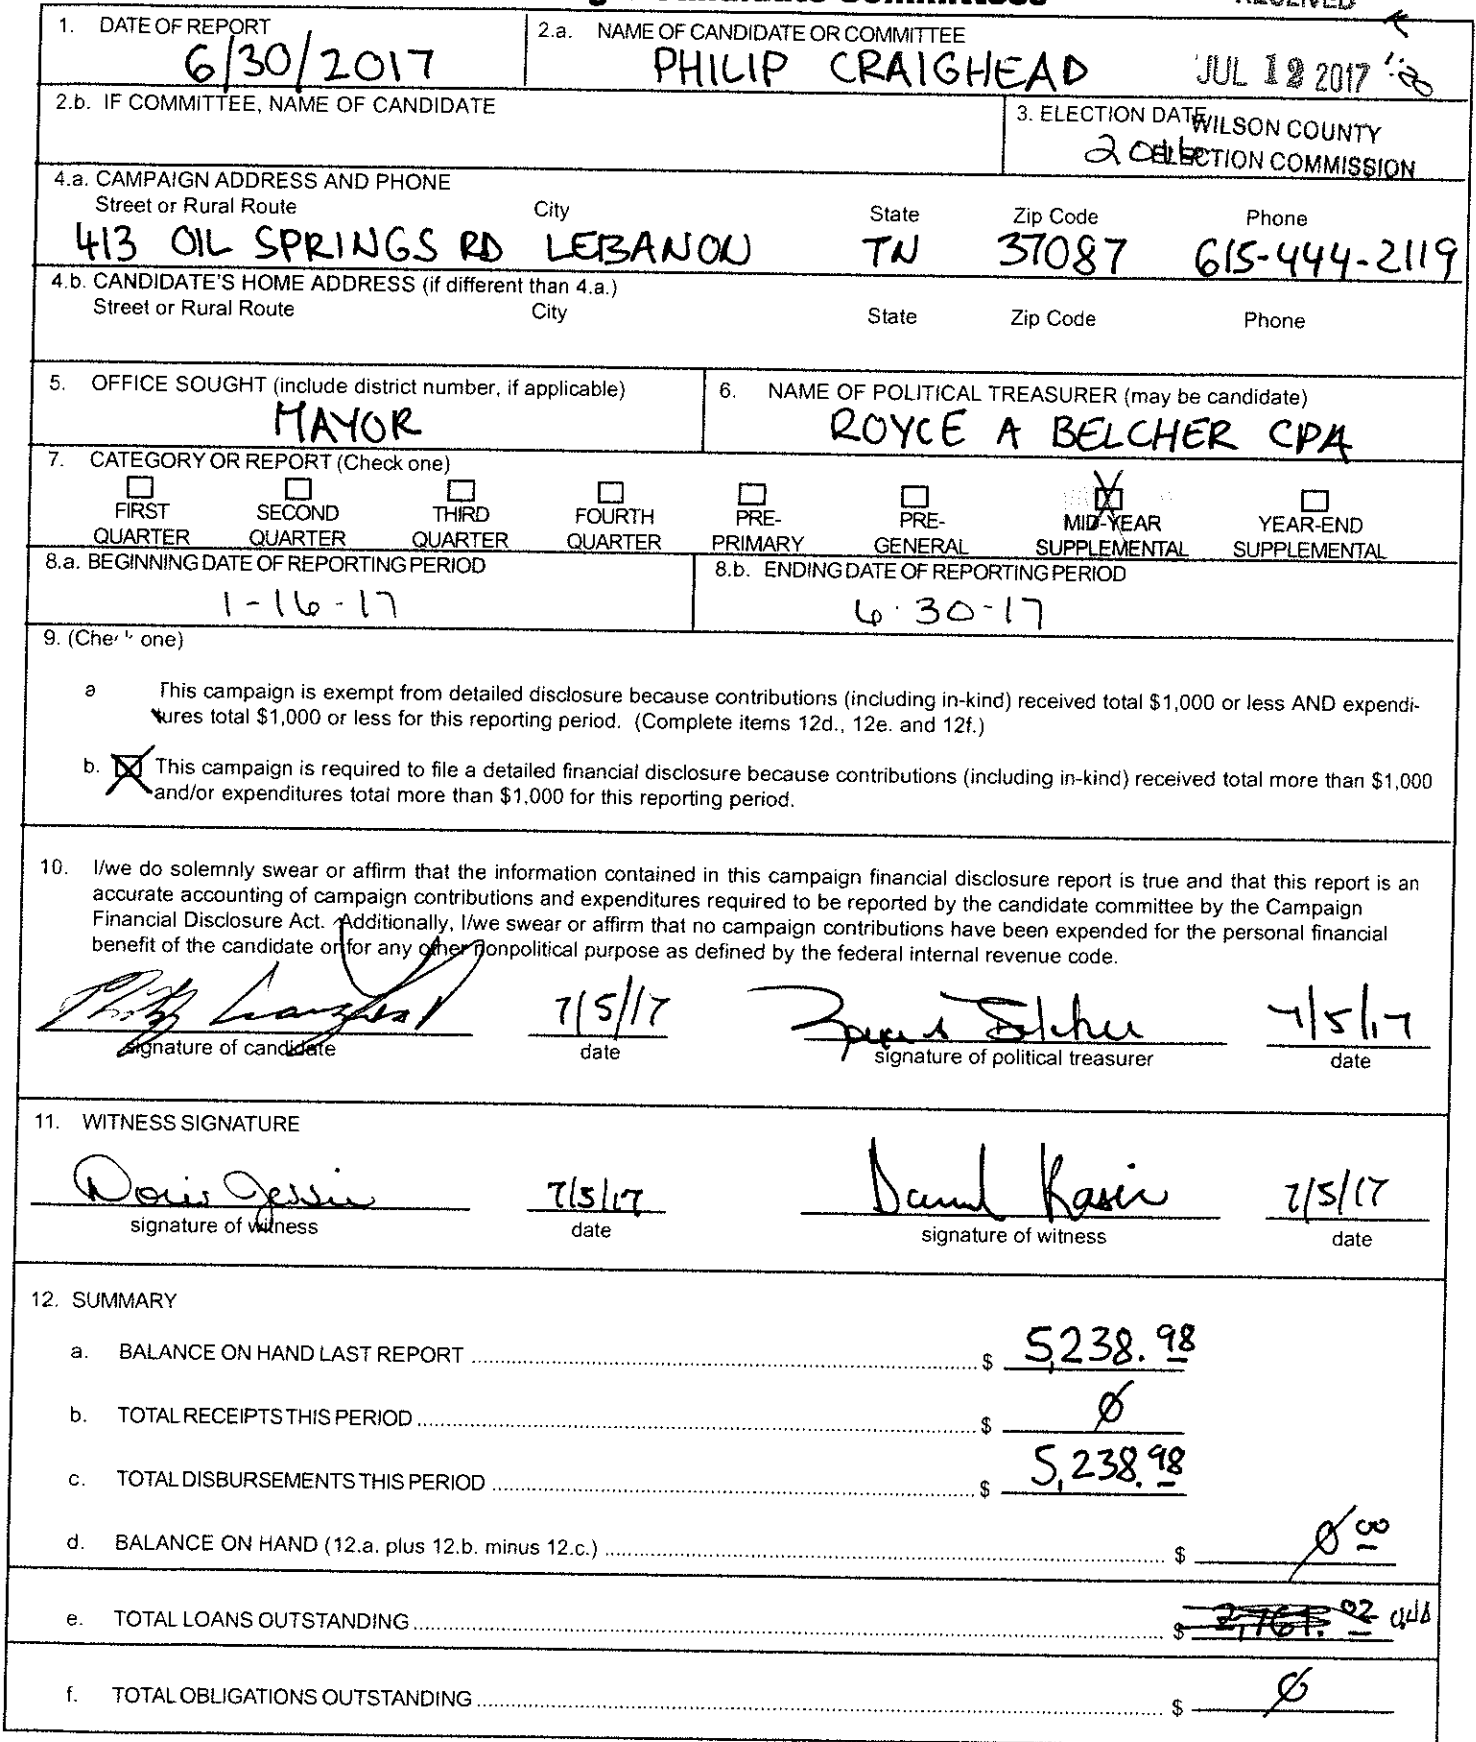 RECEIVED
1. DATE OF REPORT
6/30/2017
2.a. NAME OF CANDIDATE OR COMMITTEE
PHILIP CRAIGHEAD
JUL 12 2017
2.b. IF COMMITTEE, NAME OF CANDIDATE
3. ELECTION DATE
WILSON COUNTY
ELECTION COMMISSION
4.a. CAMPAIGN ADDRESS AND PHONE
Street or Rural Route City State Zip Code Phone
413 OIL SPRINGS RD LEBANON TN 37087 615-444-2119
4.b. CANDIDATE'S HOME ADDRESS (if different than 4.a.)
Street or Rural Route City State Zip Code Phone
5. OFFICE SOUGHT (include district number, if applicable)
MAYOR
6. NAME OF POLITICAL TREASURER (may be candidate)
ROYCE A BELCHER CPA
7. CATEGORY OR REPORT (Check one)
FIRST SECOND THIRD FOURTH PRE- PRE- MID-YEAR YEAR-END
QUARTER QUARTER QUARTER QUARTER PRIMARY GENERAL SUPPLEMENTAL SUPPLEMENTAL
8.a. BEGINNING DATE OF REPORTING PERIOD
1-16-17
8.b. ENDING DATE OF REPORTING PERIOD
6-30-17
9. (Check one)
a This campaign is exempt from detailed disclosure because contributions (including in-kind) received total $1,000 or less AND expendi-
tures total $1,000 or less for this reporting period. (Complete items 12d., 12e. and 12f.)
b. This campaign is required to file a detailed financial disclosure because contributions (including in-kind) received total more than $1,000
and/or expenditures total more than $1,000 for this reporting period.
10. I/we do solemnly swear or affirm that the information contained in this campaign financial disclosure report is true and that this report is an
accurate accounting of campaign contributions and expenditures required to be reported by the candidate committee by the Campaign
Financial Disclosure Act. Additionally, I/we swear or affirm that no campaign contributions have been expended for the personal financial
benefit of the candidate or for any other nonpolitical purpose as defined by the federal internal revenue code.
Philip Craighead 7/5/17 Royce A Belcher 7/5/17
signature of candidate date signature of political treasurer date
11. WITNESS SIGNATURE
Doris 7/5/17 7/5/17
signature of witness date signature of witness date
12. SUMMARY
a. BALANCE ON HAND LAST REPORT $ 5,238.98
b. TOTAL RECEIPTS THIS PERIOD $ Ø
c. TOTAL DISBURSEMENTS THIS PERIOD $ 5,238.98
d. BALANCE ON HAND (12.a. plus 12.b. minus 12.c.) $ Ø 00
e. TOTAL LOANS OUTSTANDING $ 2,761.02
f. TOTAL OBLIGATIONS OUTSTANDING $ Ø